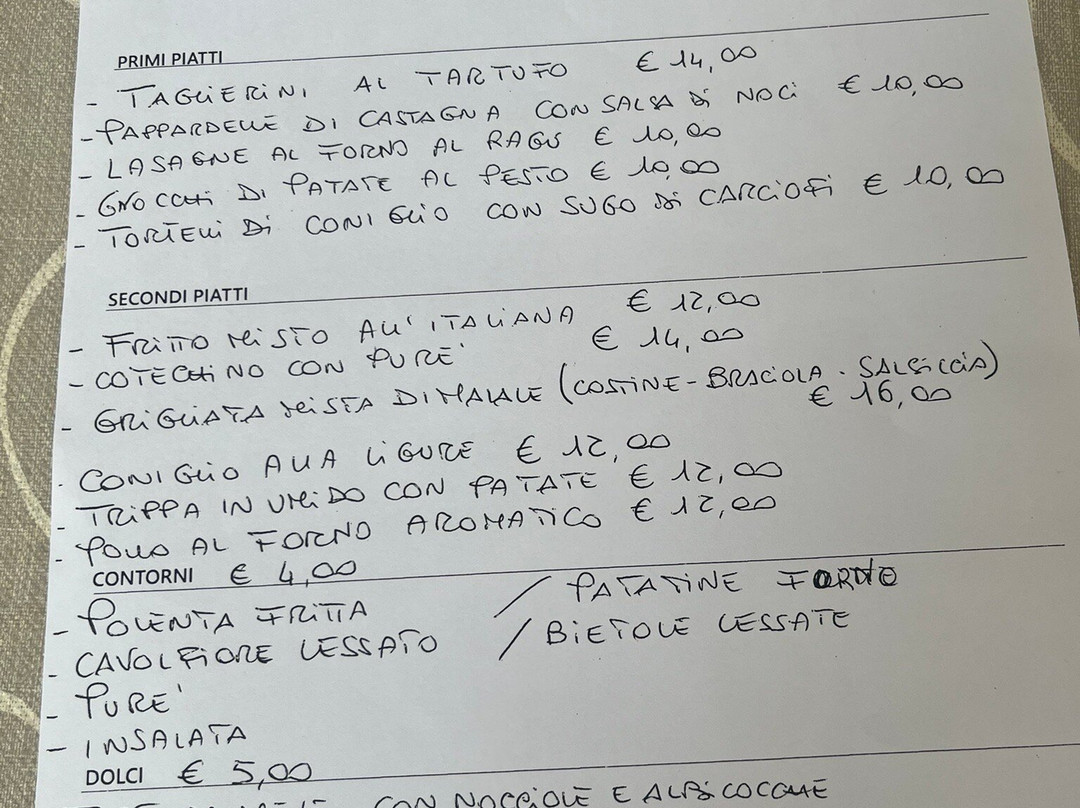 PRIMI PIATTI
- TAGLIERINI AL TARTUFO € 14,00
- PAPPARDELLE DI CASTAGNA CON SALSA DI NOCI € 10,00
- LASAGNE AL FORNO AL RAGÙ € 10,00
- GNOCCHI DI PATATE AL PESTO € 10,00
- TORTELLI DI CONIGLIO CON SUGO DI CARCIOFI € 10,00
SECONDI PIATTI
- FRITTO MISTO ALL'ITALIANA € 12,00
- COTECHINO CON PURE' € 14,00
- GRIGLIATA MISTA DI MAIALE (COSTINE - BRACIOLA - SALSICCIA)
€ 16,00
- CONIGLIO ALLA LIGURE € 12,00
- TRIPPA IN UMIDO CON PATATE € 12,00
- POLLO AL FORNO AROMATICO € 12,00
CONTORNI € 4,00
- POLENTA FRITTA / PATATINE FORNO
- CAVOLFIORE LESSATO / BIETOLE LESSATE
- PURE'
- INSALATA
DOLCI € 5,00
CON NOCCIOLE E ALBICOCCHE